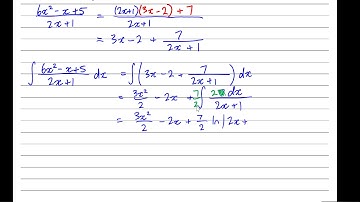 (6x² - x + 5)/(2x + 1) = ((2x+1)(3x-2) + 7)/(2x + 1)
= 3x - 2 + 7/(2x + 1)
∫ (6x² - x + 5)/(2x + 1) dx = ∫ (3x - 2 + 7/(2x + 1)) dx
= 3x²/2 - 2x + 7/2 ∫ 2 dx/(2x + 1)
= 3x²/2 - 2x + 7/2 ln|2x +